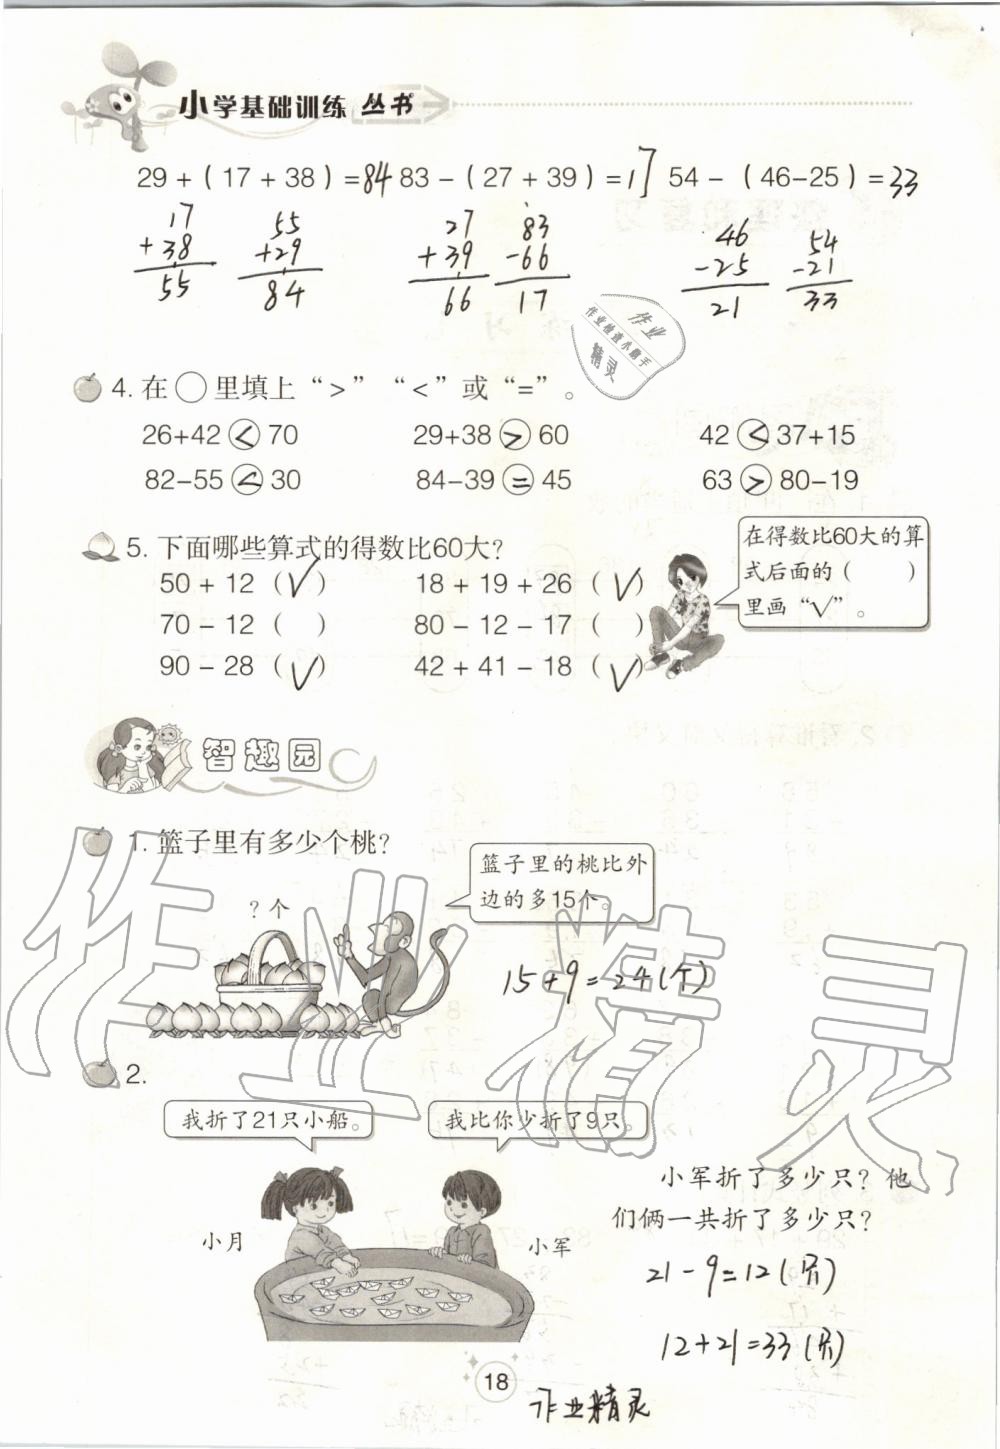 小学基础训练 丛书
29 + ( 17 + 38 ) = 84 83 - ( 27 + 39 ) = 17 54 - ( 46-25 ) = 33
17 55 27 83 46 54
+38 +29 +39 -66 -25 -21
55 84 66 17 21 33
作业
作业检查小助手
精灵
4. 在 ○ 里填上 “>” “<” 或 “=” 。
26+42 < 70 29+38 > 60 42 < 37+15
82-55 < 30 84-39 = 45 63 > 80-19
5. 下面哪些算式的得数比60大?
在得数比60大的算
式后面的 ( )
里画 “√” 。
50 + 12 ( √ ) 18 + 19 + 26 ( √ )
70 - 12 ( ) 80 - 12 - 17 ( )
90 - 28 ( √ ) 42 + 41 - 18 ( √ )
智趣园
1. 篮子里有多少个桃?
篮子里的桃比外
边的多15个。
? 个
15+9=24(个)
作业精灵
2.
我折了21只小船。 我比你少折了9只。
小月 小军
小军折了多少只? 他
们俩一共折了多少只?
21-9=12(只)
12+21=33(只)
18
作业精灵